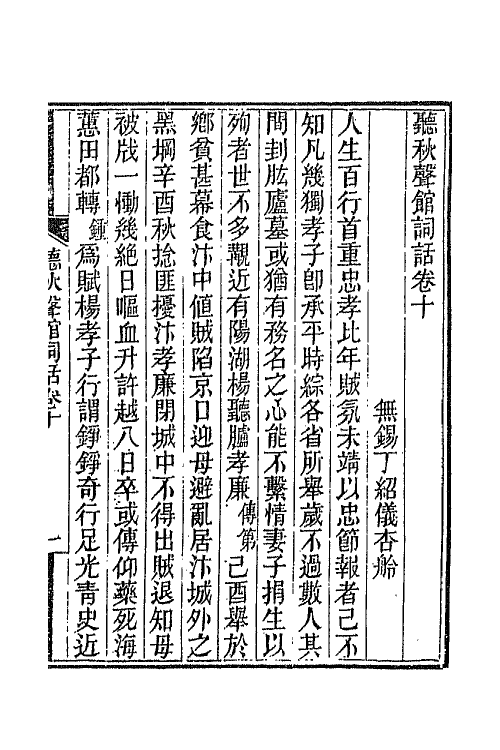 聽秋聲館詞話卷十
無錫丁紹儀杏舲
人生百行首重忠孝比年賊氛未靖以忠節報者已不
知凡幾獨孝子卽承平時綜各省所舉歲不過數人其
間刲肱廬墓或猶有務名之心能不繫情妻子捐生以
殉者世不多覯近有陽湖楊聽臚孝廉傳第己酉舉於
鄉貧甚幕食汴中値賊陷京口迎母避亂居汴城外之
黑堈辛酉秋捻匪擾汴孝廉閉城中不得出賊退知母
被戕一慟幾絕日嘔血升許越八日卒或傳仰藥死海
蕙田都轉鍾爲賦楊孝子行謂錚錚奇行足光靑史近
聽秋聲館詞話卷十
一